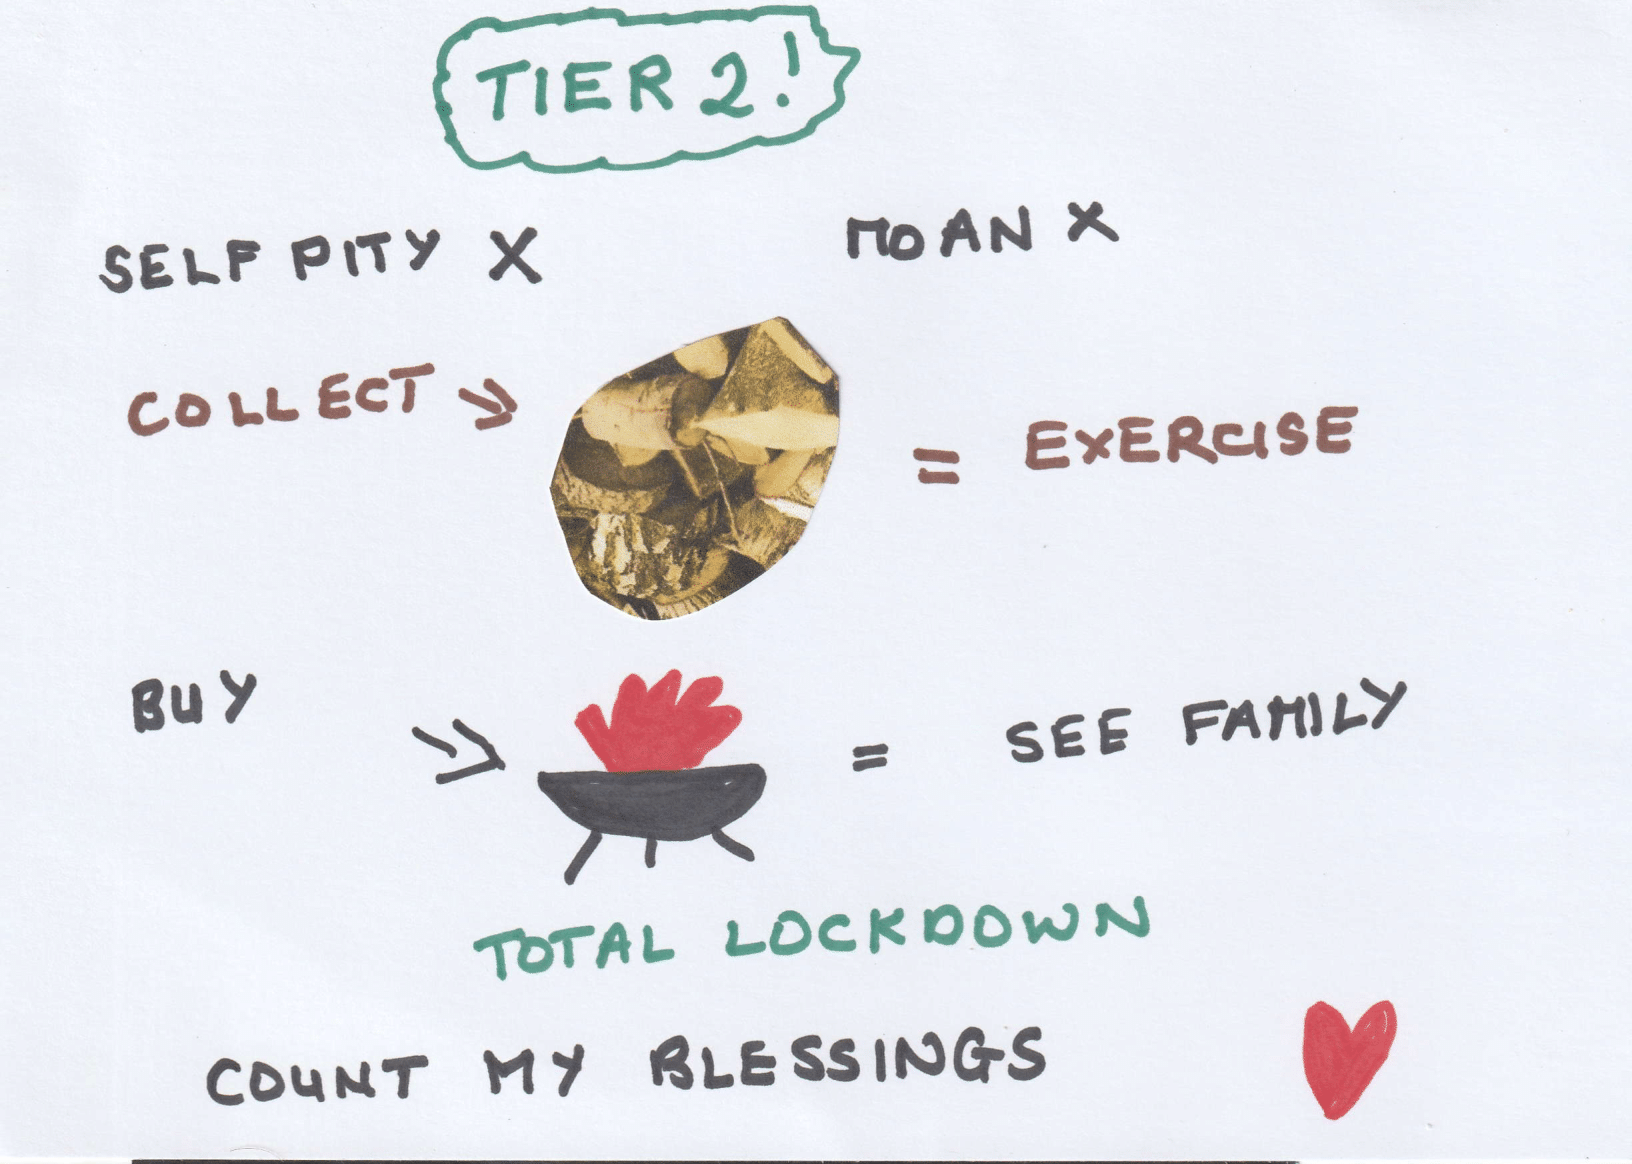 TIER 2!
SELF PITY X MOAN X
COLLECT >> = EXERCISE
BUY >> = SEE FAMILY
TOTAL LOCKDOWN
COUNT MY BLESSINGS